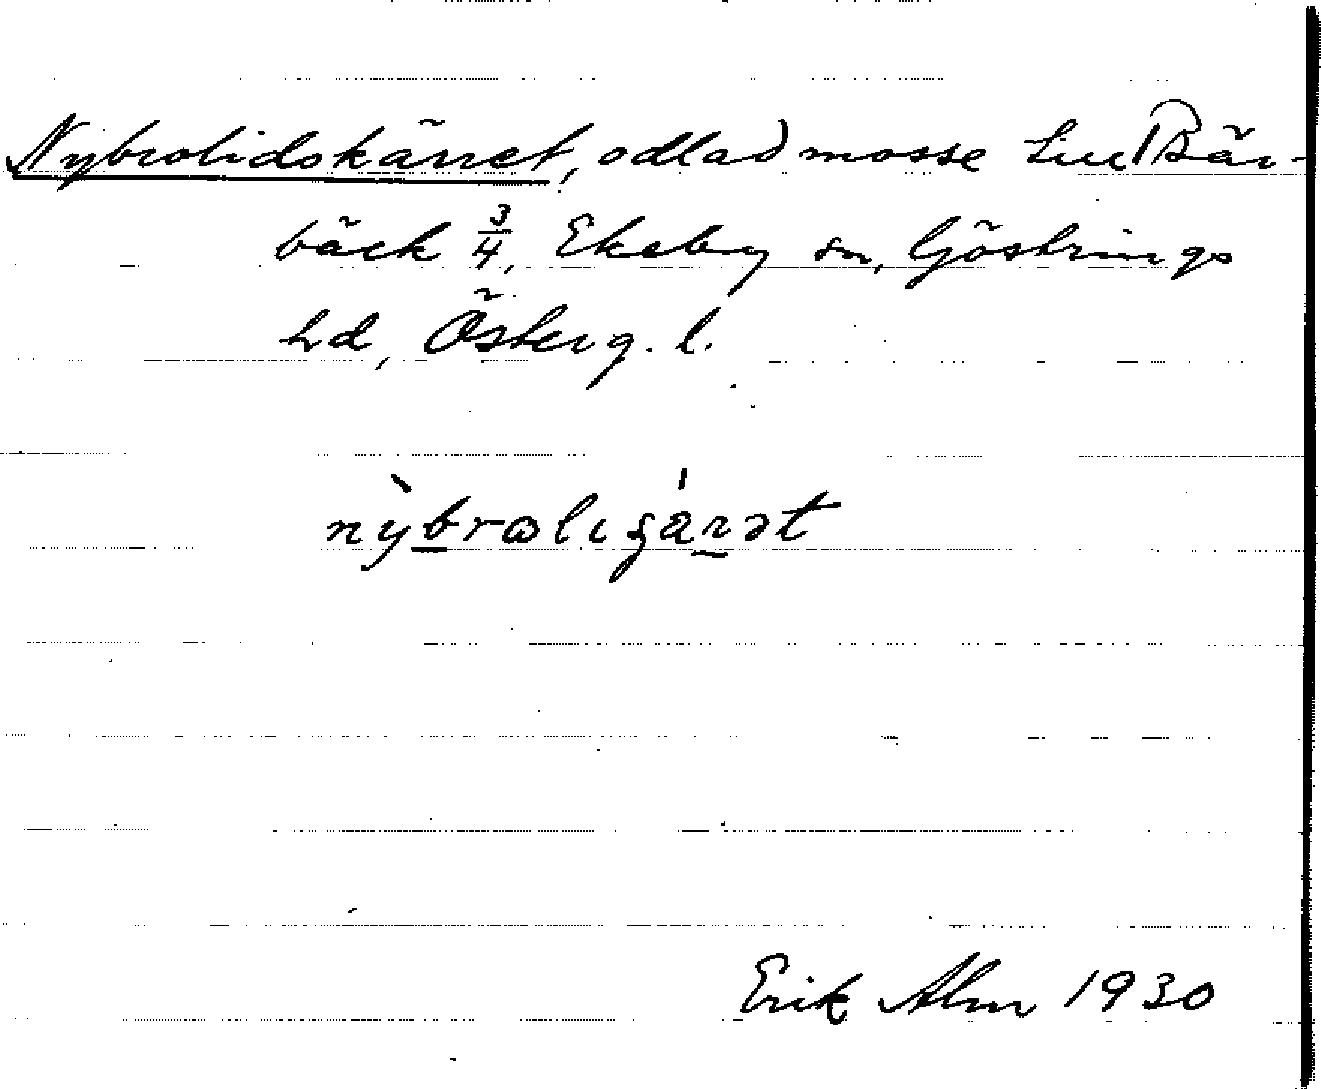 Nybrolidskärret, odlad mosse Bär-
bäck 3/4, Ekeby sn, Göstrings
hd, Österg. l.
nỳbrωlıʂárət
Erik Alm 1930